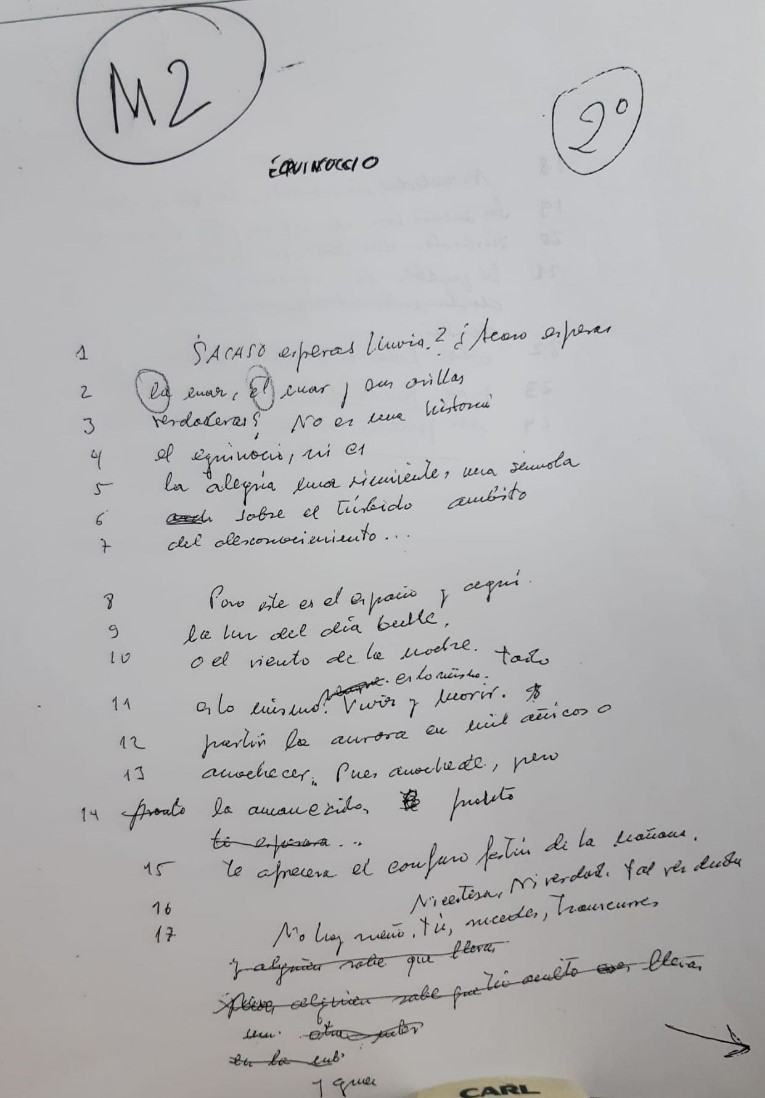 M2
2º
EQUINOCCIO
1 ¿ACASO esperas lluvia? ¿Acaso esperas
2 la mar, el mar y sus orillas
3 verdaderas? No es una historia
4 el equinoccio, ni es
5 la alegría una simiente, una sémola
6 sobre el túrbido ámbito
7 del desconocimiento...
8 Pero este es el espacio y aquí
9 la luz del día bulle,
10 o el viento de la noche. Todo
es lo mismo.
11 es lo mismo: Vivir y morir.
12 partir la aurora en mil añicos o
13 anochecer. Pues anochece, pero
14 pronto la amanecida, pronto
te espera...
15 te ofrecerá el confuso festín de la mañana.
16 Ni certeza, Ni verdad. Tal vez duda
17 No hay sueño. Tú, sucedes, transcurres
y alguien sabe que llevas
alguien sabe que tú oculto llevas
en la
y que
CARL